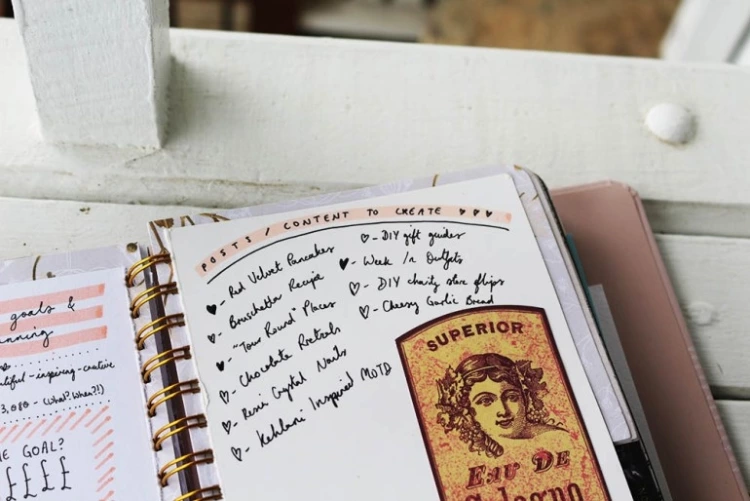 goals &
nning
tiful-inspiring-creative
3,000 - (What? When?!)
E GOAL?
££££
POSTS / CONTENT TO CREATE
- Red Velvet Pancakes
- Bruschetta Recipe
- "Tour Round" Places
- Chocolate Pretzels
- Crystal Nails
- Kehlani Inspired MOTD
- DIY gift guides
- Week in Outfits
- DIY charity store flips
- Cheesy Garlic Bread
SUPERIOR
EAU DE
Cologne